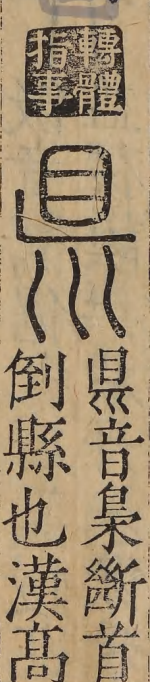 轉體指事
𥄉
県音梟斷首
倒縣也漢髙